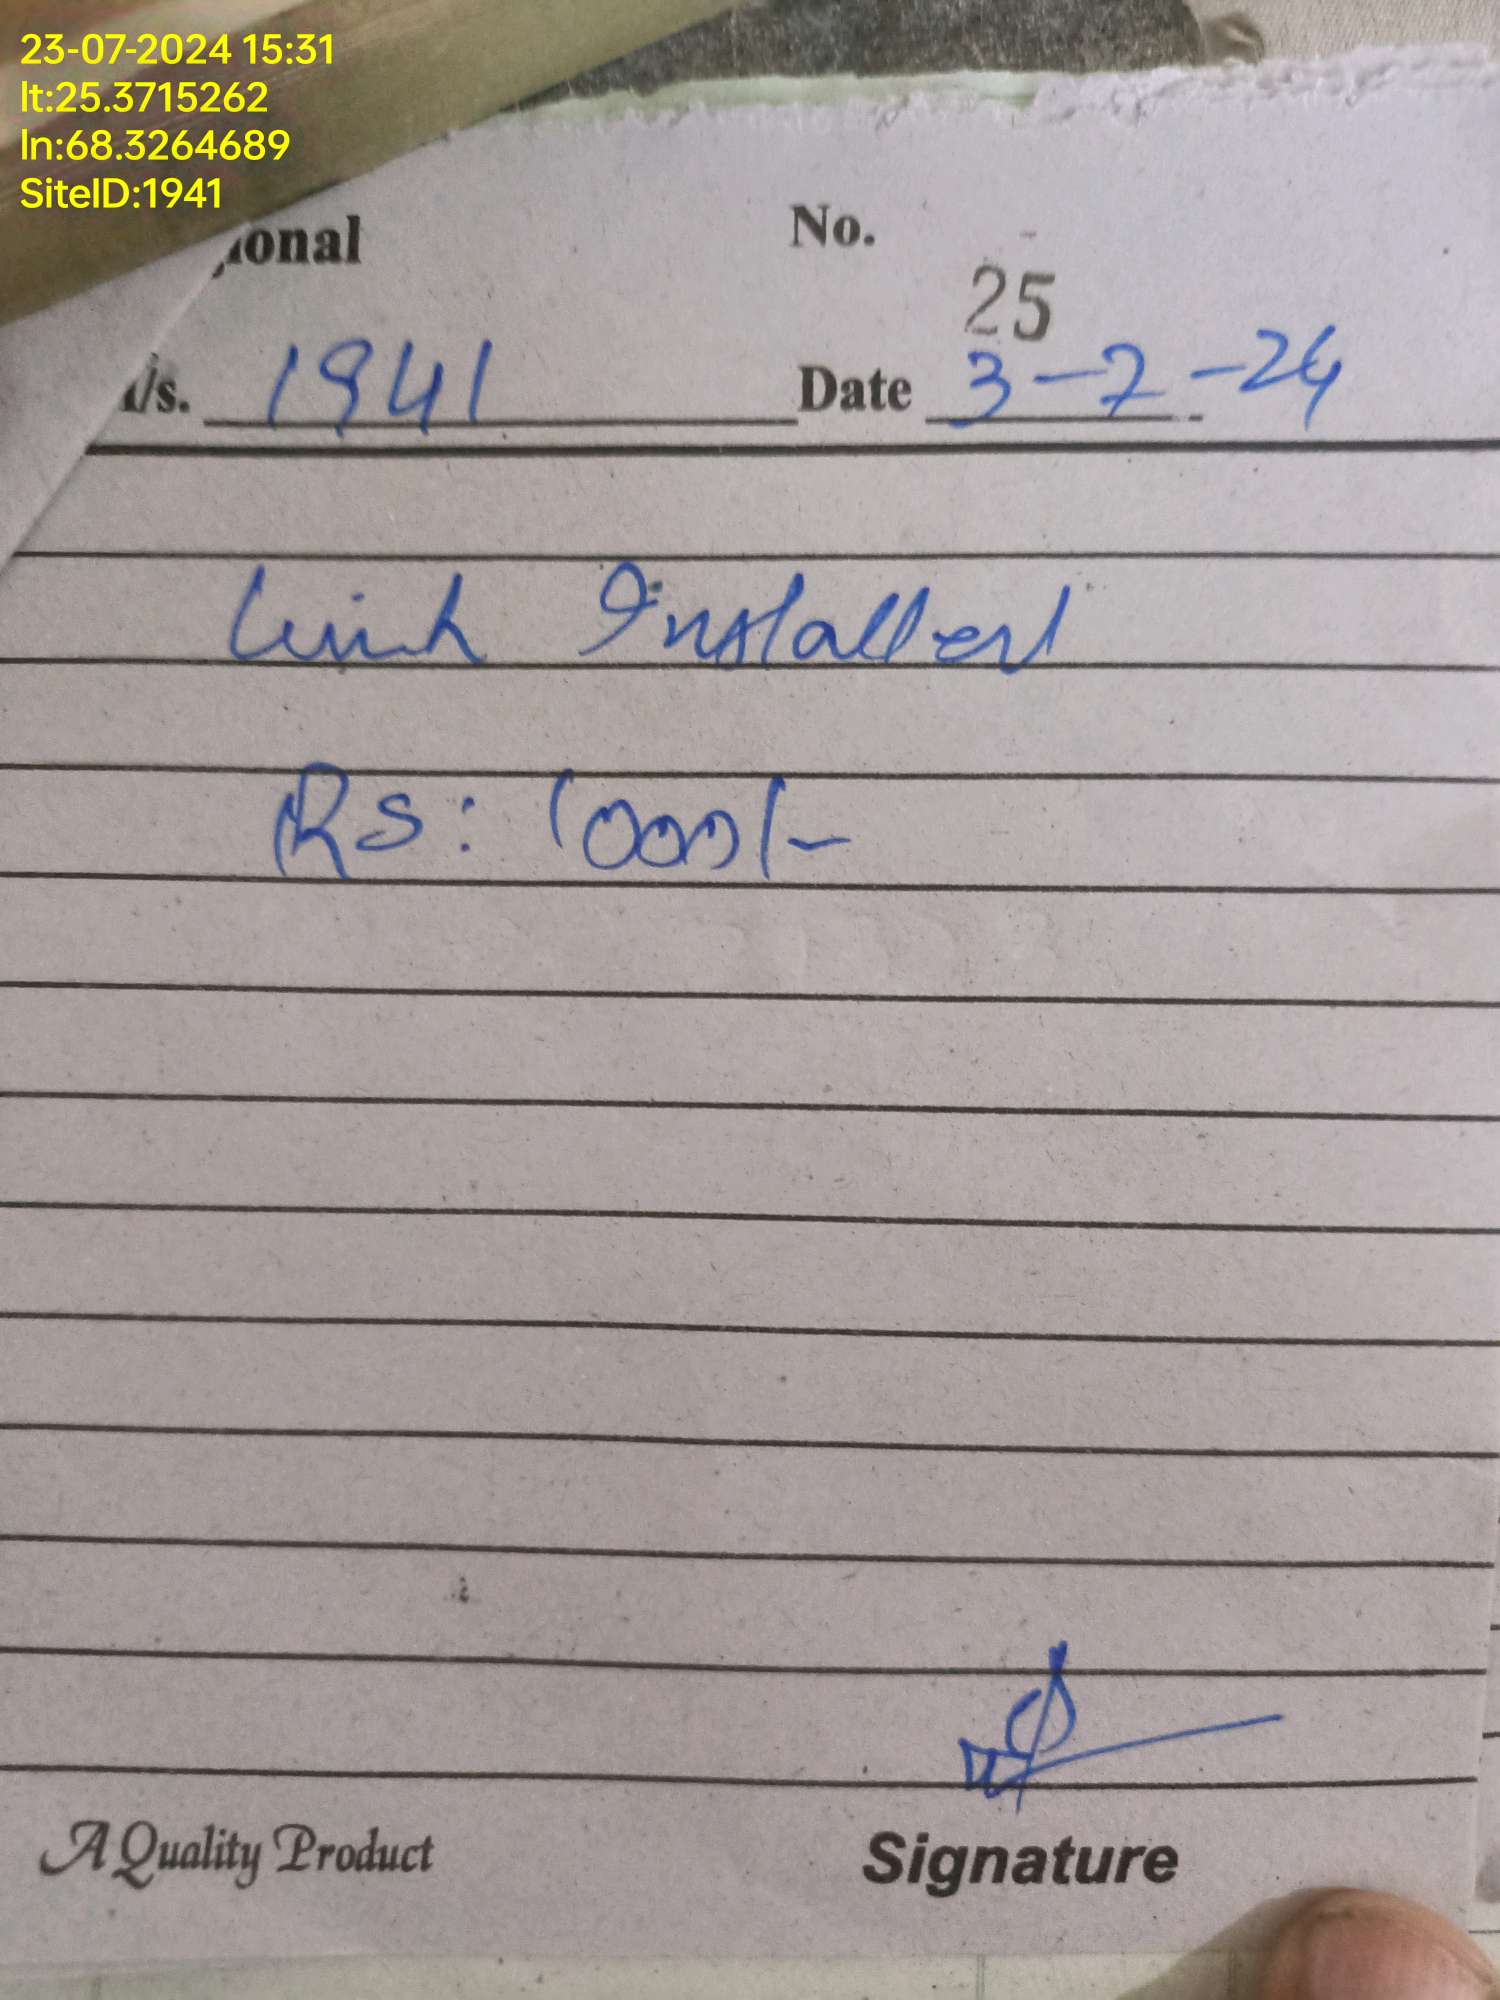 23-07-2024 15:31
lt:25.3715262
ln:68.3264689
SiteID:1941
ional No.
25
/s. 1941 Date 3-7-24
Link Installed
Rs: 1000/-
A Quality Product Signature